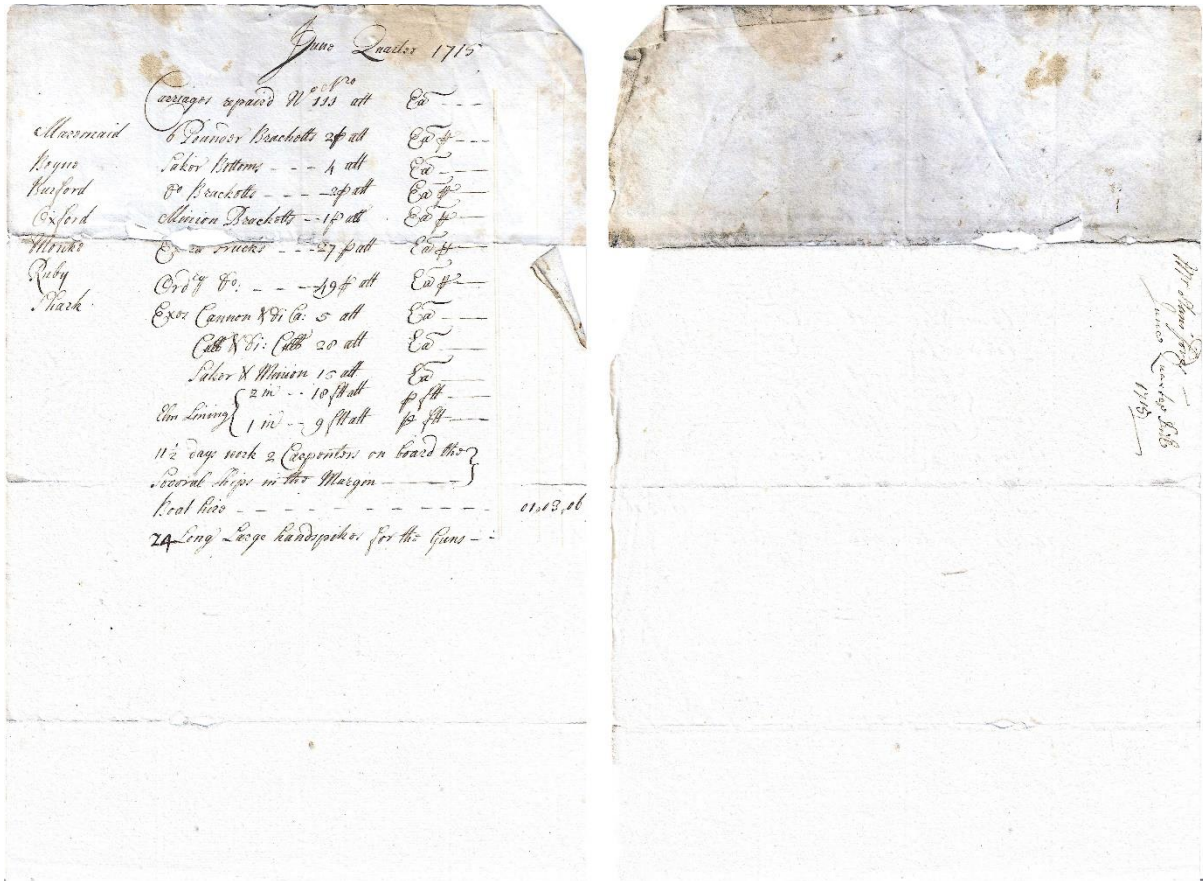 June Quarter 1715
Carriages repaird No 111 att Ea
Maremaid 6 Pounder Bracketts 2 p att Ea p
Boyne Saker Bottoms - - - 4 att Ea
Burford Do Bracketts - - - 2 p att Ea p
Oxford Minion Bracketts - - 1 p att Ea p
Monke Trucks - - - 27 p att Ea p
Ruby Ordry Do: - - - 49 p att Ea p
Shark
Exes Cannon & di Ca: 5 att Ea
Cult & di: Cult 28 att Ea
Saker & Minion 15 att Ea
Elm Lining { 2 in - - 18 ftt att p ftt
1 in - - 9 ftt att p ftt
11½ days work 2 Carpenters on board the
Several ships in the Margin
Boat hire - - - - - - - - - 01,03,06
24 Long Large handspikes for the Guns - -
Mr
June Quarter Bill
1715